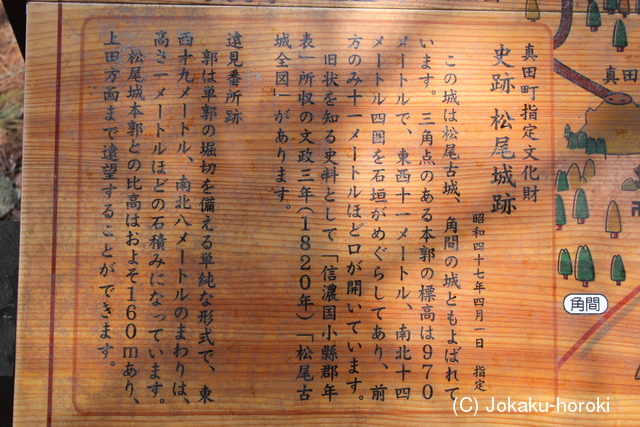 真田町指定文化財
史跡 松尾城跡
昭和四十七年四月一日 指定
この城は松尾古城、角間の城ともよばれて
います。三角点のある本郭の標高は970
メートルで、東西十一メートル、南北十四
メートル四囲を石垣がめぐらしてあり、前
方のみ十一メートルほど口が開いています。
旧状を知る史料として「信濃国小縣郡年
表」所収の文政三年(1820年)「松尾古
城全図」があります。
遠見番所跡
郭は単郭の堀切を備える単純な形式で、東
西十九メートル、南北八メートルのまわりは、
高さ一メートルほどの石積みになっています。
松尾城本郭との比高はおよそ160mあり、
上田方面まで遠望することができます。
真田
角間
(C) Jokaku-horoki